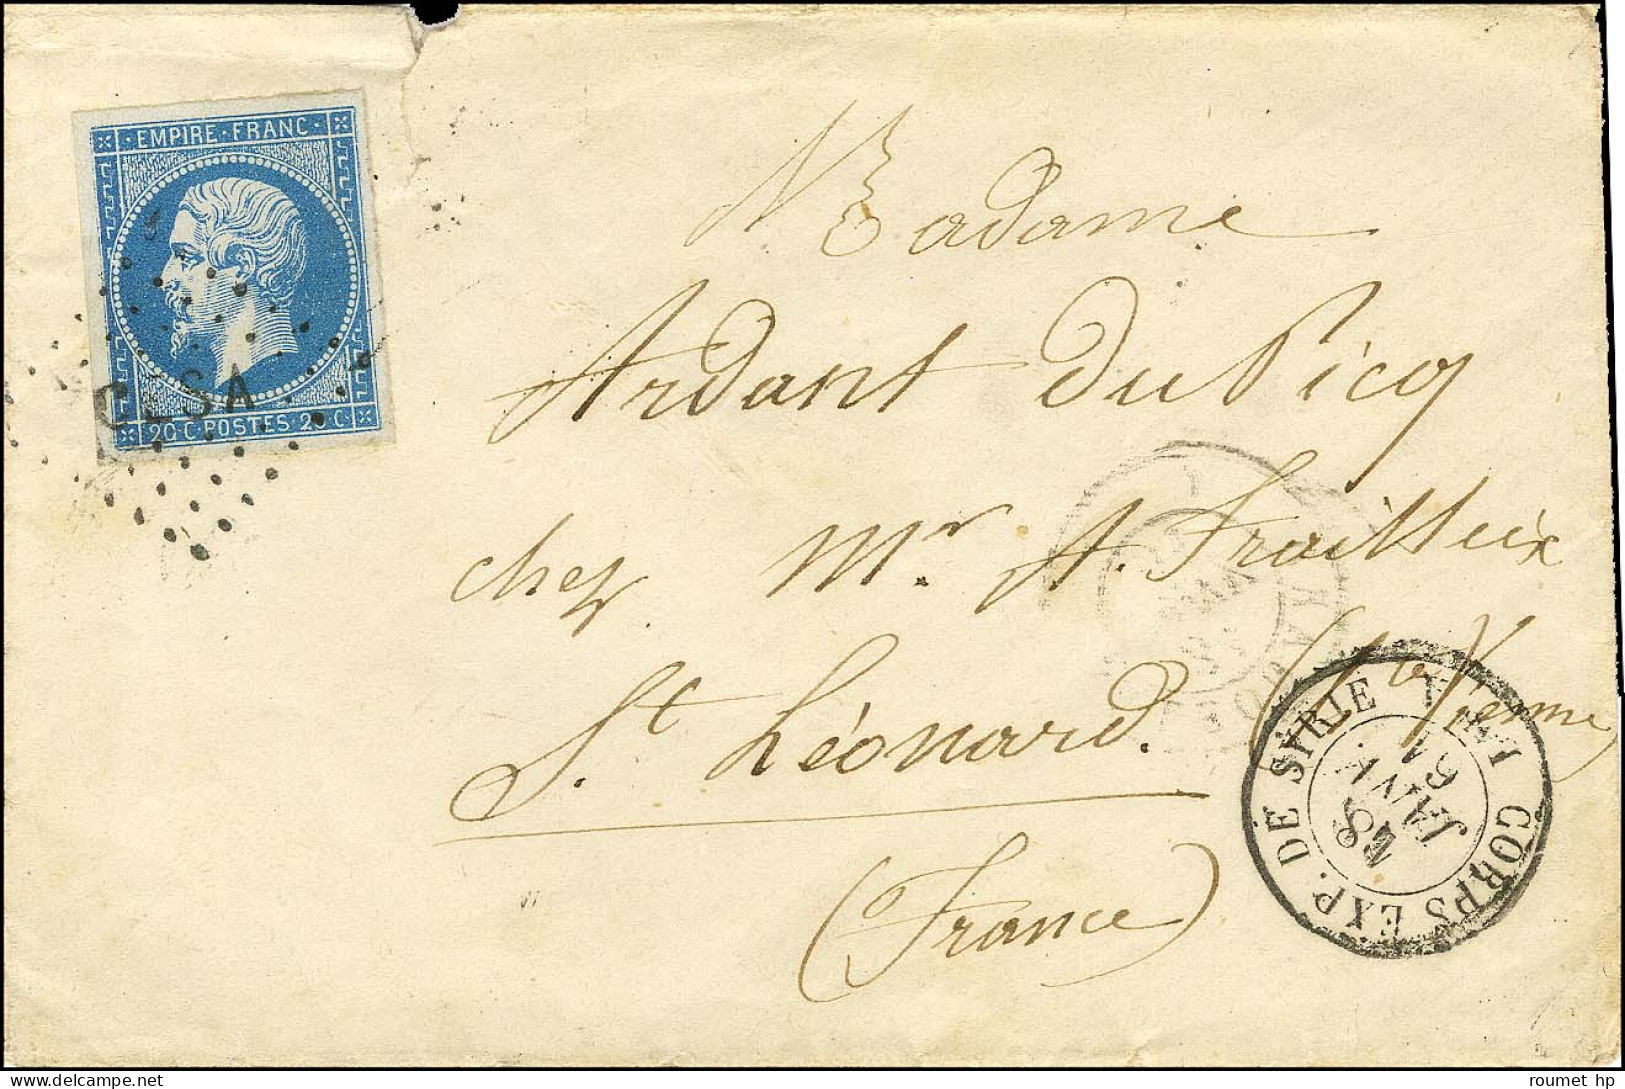 EMPIRE · FRANC ·
20 C · POSTES · 20 C ·
CESA
Madame
Ardant du Picq
chez Mr. A. Fraitteix
St Léonard. (Hte Vienne)
(France)
CORPS EXP. DE SYRIE
28
JANV.
roumet hp